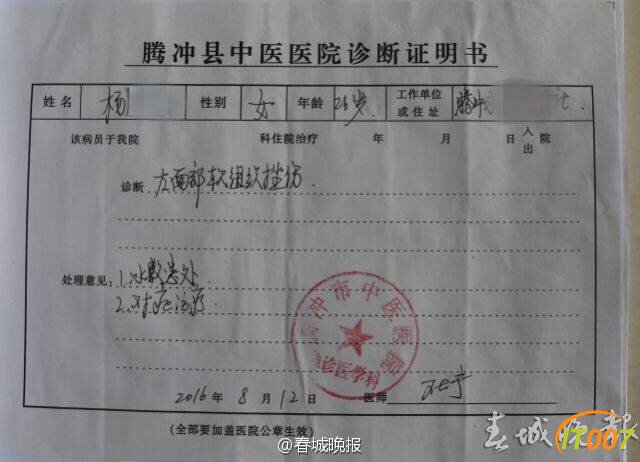 腾冲县中医医院诊断证明书
姓名 杨 性别 女 年龄 26岁 工作单位或住址 腾冲 社
该病员于我院 科住院治疗 年 月 日入出院
诊断 左面部软组织挫伤
处理意见: 1.冰敷患处
2.对症治疗
腾冲市中医医院
急诊医学科
2016年8月12日 医师
(全部要加盖医院公章生效)
@春城晚报
春城晚报
IT007